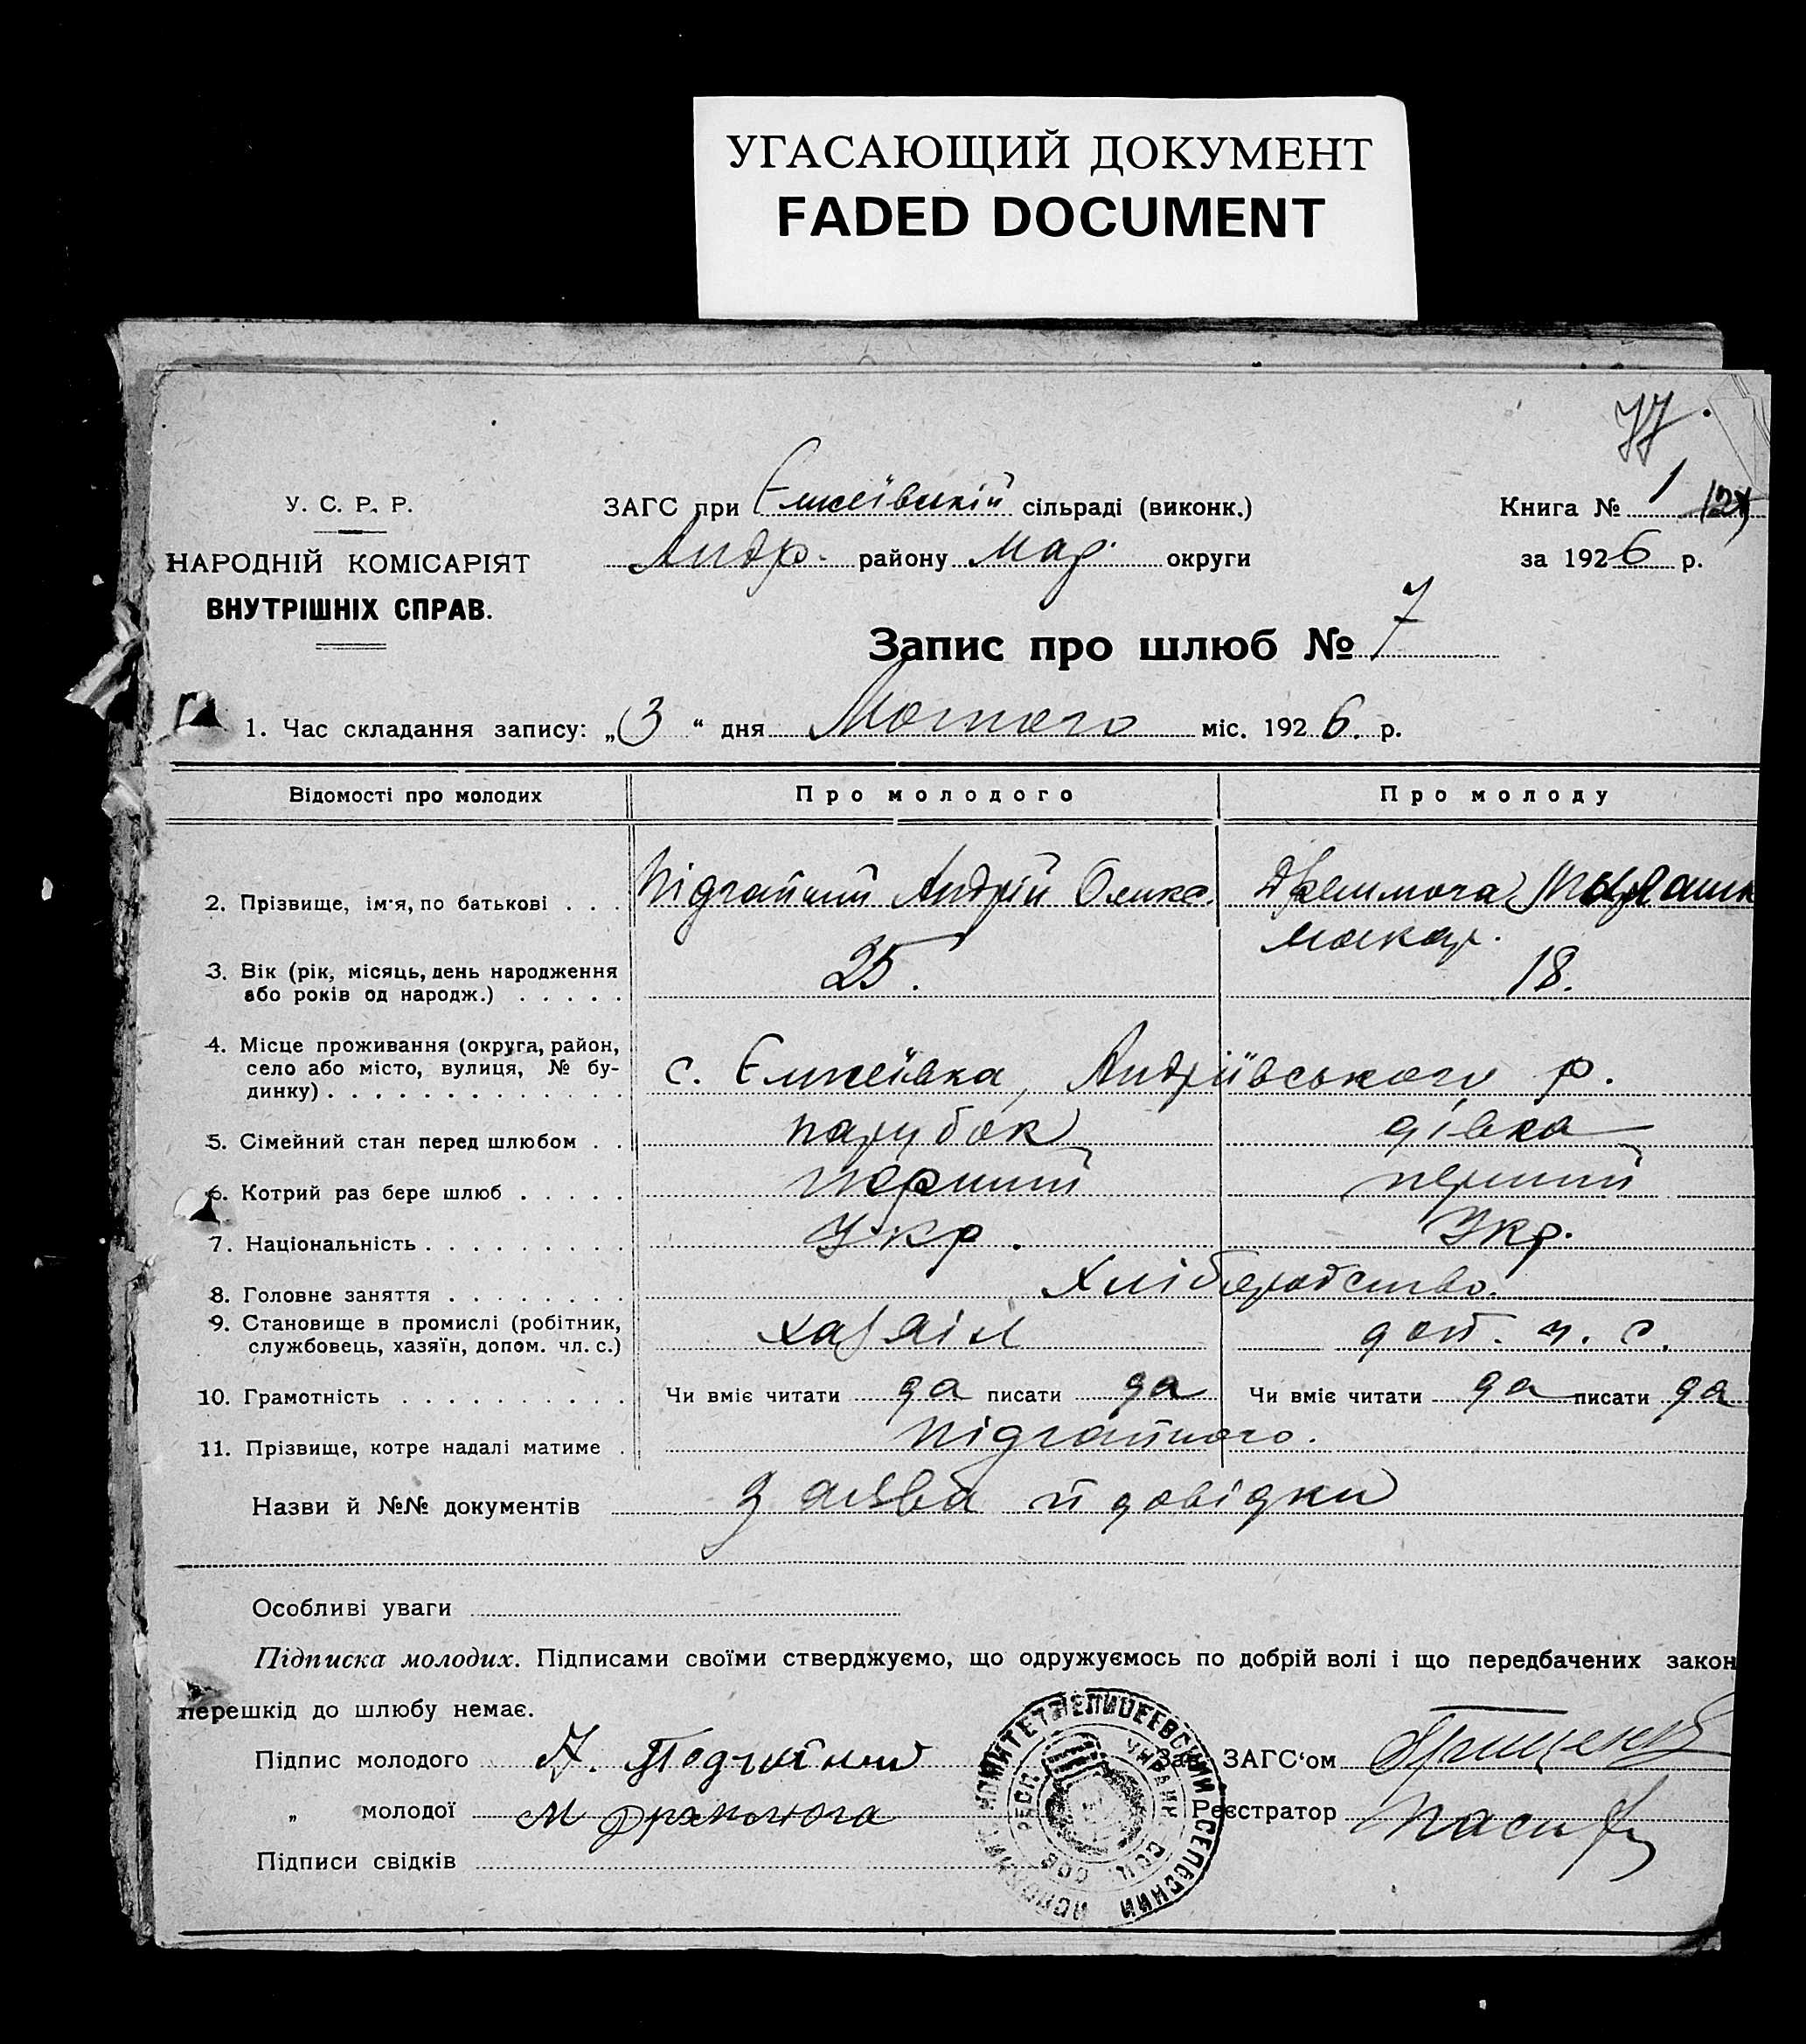 УГАСАЮЩИЙ ДОКУМЕНТ
FADED DOCUMENT
77.
У. С. Р. Р.
НАРОДНІЙ КОМІСАРІЯТ
ВНУТРІШНІХ СПРАВ.
ЗАГС при Єлисеївській сільраді (виконк.)
Андр. району Мар. округи
Книга № 1
за 1926 р.
Запис про шлюб № 7
1. Час складання запису: „3" дня Лютого міс. 1926. р.
Відомості про молодих Про молодого Про молоду
2. Прізвище, ім'я, по батькові . . . Підгайний Андрій Олекс.
Макар.
3. Вік (рік, місяць, день народження
або років од народж.) . . . . . 25. 18.
4. Місце проживання (округа, район,
село або місто, вулиця, № бу-
динку) . . . . . . . . . . . . . с. Єлисеївка, Андріївського р.
5. Сімейний стан перед шлюбом . . парубок дівка
6. Котрий раз бере шлюб . . . . . перший перший
7. Національність . . . . . . . . . Укр. Укр.
8. Головне заняття . . . . . . . . Хліборобство.
9. Становище в промислі (робітник,
службовець, хазяїн, допом. чл. с.) хазяїн доп. ч. с.
10. Грамотність . . . . . . . . . . Чи вміє читати да писати да Чи вміє читати да писати да
11. Прізвище, котре надалі матиме . Підгайного.
Назви й №№ документів заява й довідки
Особливі уваги
Підписка молодих. Підписами своїми стверджуємо, що одружуємось по добрій волі і що передбачених закон
перешкід до шлюбу немає.
Підпис молодого А. Подгайний Зав. ЗАГС'ом Грищенко
„ молодої М Дримлюга Реєстратор
Підписи свідків